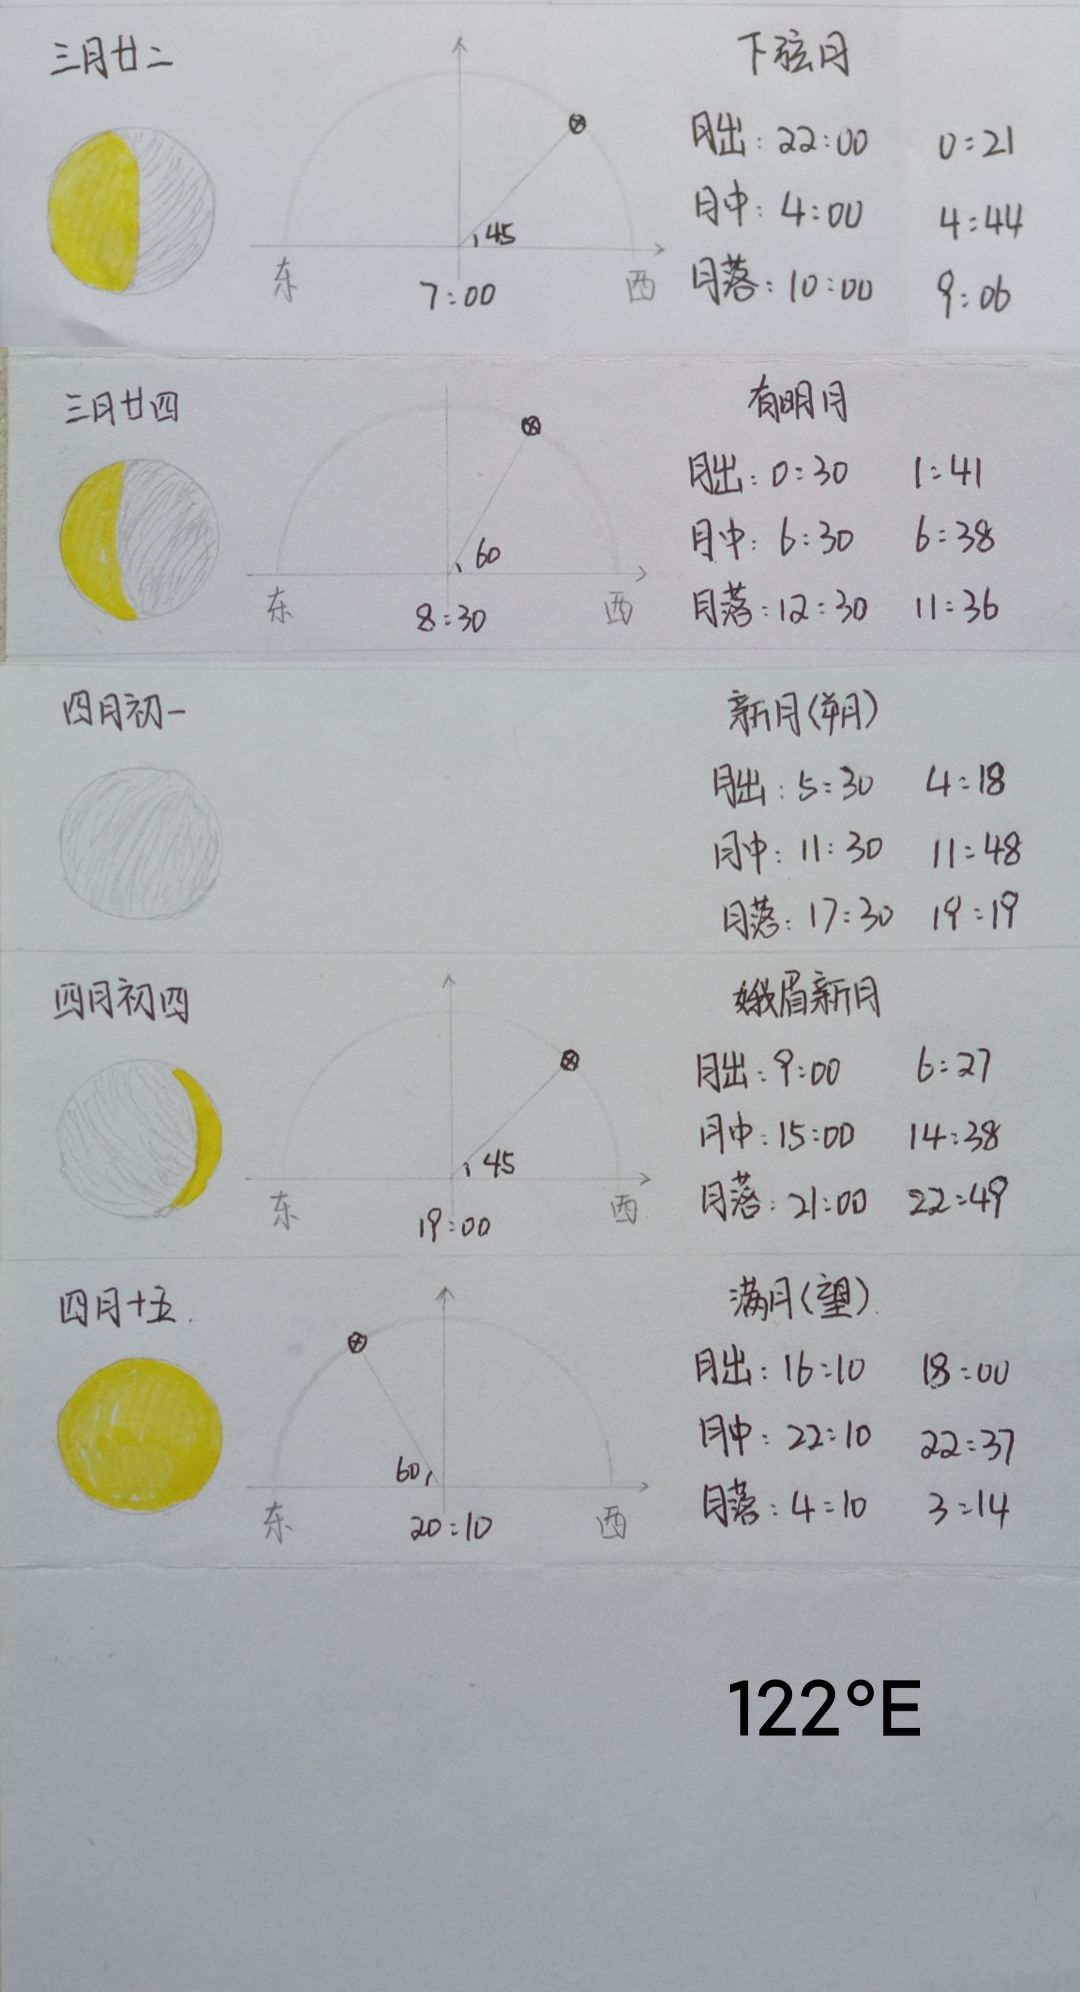 三月廿二
下弦月
月出：22:00 0:21
月中：4:00 4:44
月落：10:00 9:06
45
东 西
7:00
三月廿四
有明月
月出：0:30 1:41
月中：6:30 6:38
月落：12:30 11:36
60
东 西
8:30
四月初一
新月(朔)
月出：5:30 4:18
月中：11:30 11:48
月落：17:30 19:19
四月初四
娥眉新月
月出：9:00 6:27
月中：15:00 14:38
月落：21:00 22:49
45
东 西
19:00
四月十五.
满月(望)
月出：16:10 18:00
月中：22:10 22:37
月落：4:10 3:14
60
东 西
20:10
122°E